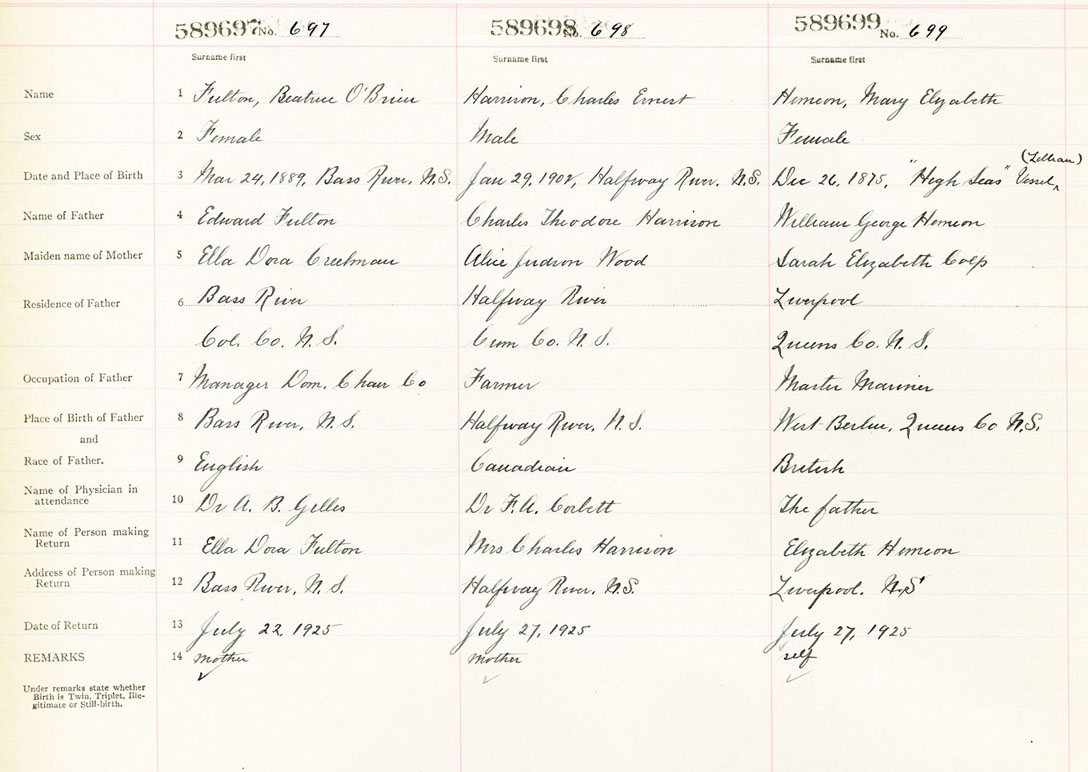 589697 No. 697 589698 No. 698 589699 No. 699
Surname first Surname first Surname first
Name 1 Fulton, Beatrice O'Brien Harrison, Charles Ernest Homeon, Mary Elizabeth
Sex 2 Female Male Female
(Lillian)
Date and Place of Birth 3 Mar 24, 1889, Bass River, N.S. Jan 29, 1902, Halfway River, N.S. Dec 26, 1875, "High Seas" Vessel
Name of Father 4 Edward Fulton Charles Theodore Harrison William George Homeon
Maiden name of Mother 5 Ella Dora Creelman Alice Judson Wood Sarah Elizabeth Colp
Residence of Father 6 Bass River Halfway River Liverpool
Col. Co. N.S. Cum Co. N.S. Queens Co. N.S.
Occupation of Father 7 Manager Dom. Chair Co Farmer Master Mariner
Place of Birth of Father 8 Bass River, N.S. Halfway River, N.S. West Berlin, Queens Co N.S.
and
Race of Father. 9 English Canadian British
Name of Physician in
attendance 10 Dr A. B. Gilles Dr F.A. Corbett The father
Name of Person making
Return 11 Ella Dora Fulton Mrs Charles Harrison Elizabeth Homeon
Address of Person making
Return 12 Bass River, N.S. Halfway River, N.S. Liverpool, N.S
Date of Return 13 July 22, 1925 July 27, 1925 July 27, 1925
REMARKS 14 mother mother self
Under remarks state whether
Birth is Twin, Triplet, Ille-
gitimate or Still-birth.